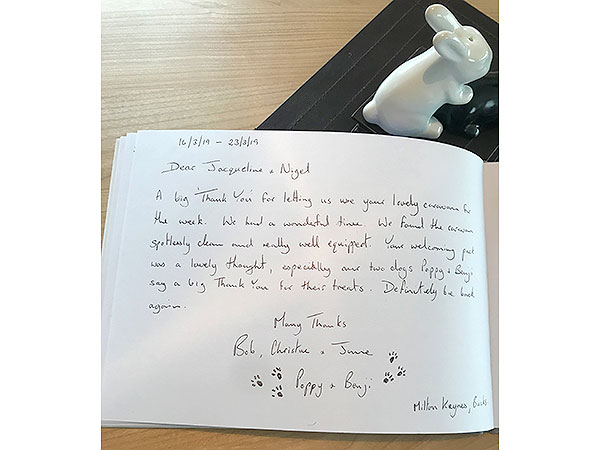 16/3/19 - 23/3/19
Dear Jacqueline & Nigel
A big 'Thank You' for letting us use your lovely caravan for
the week. We had a wonderful time. We found the caravan
spotlessly clean and really well equippet. Your welcoming pack
was a lovely thought, especially our two dogs Poppy & Benji
say a big Thank You for their treats. Definitely be back
again.
Many Thanks
Bob, Christine &
Poppy & Benji
Milton Keynes, Bucks